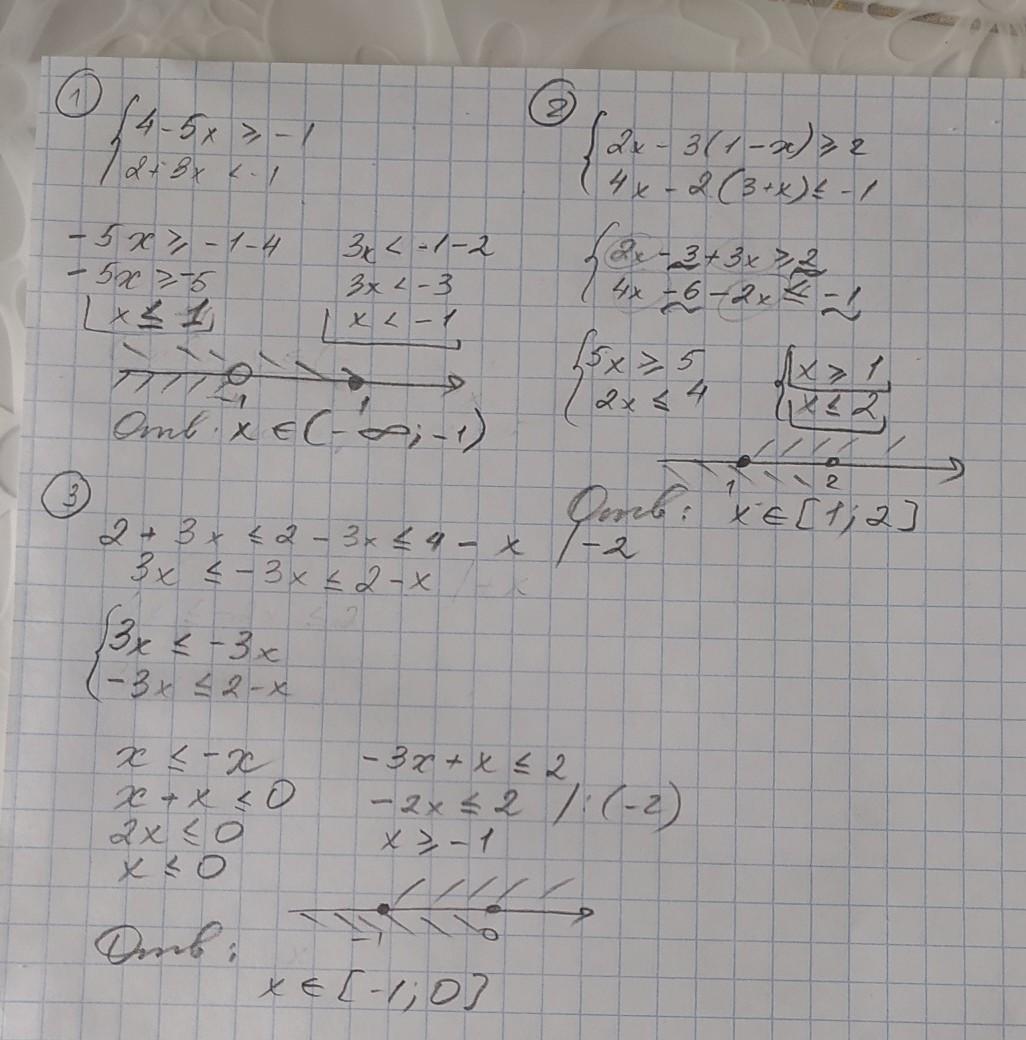 ①
{4-5x ≥ -1
2+3x < -1
-5x ≥ -1-4 3x < -1-2
-5x ≥ -5 3x < -3
x ≤ 1 x < -1
-1 1
Отв. x ∈ (-∞; -1)
②
{2x - 3(1-x) ≥ 2
4x - 2(3+x) ≤ -1
{2x - 3 + 3x ≥ 2
4x - 6 - 2x ≤ -1
{5x ≥ 5 {x ≥ 1
2x ≤ 4 x ≤ 2
1 2
Отв: x ∈ [1; 2]
③
2 + 3x ≤ 2 - 3x ≤ 4 - x /-2
3x ≤ -3x ≤ 2-x
{3x ≤ -3x
-3x ≤ 2-x
x ≤ -x -3x + x ≤ 2
x + x ≤ 0 -2x ≤ 2 /:(-2)
2x ≤ 0 x ≥ -1
x ≤ 0
-1 0
Отв:
x ∈ [-1; 0]